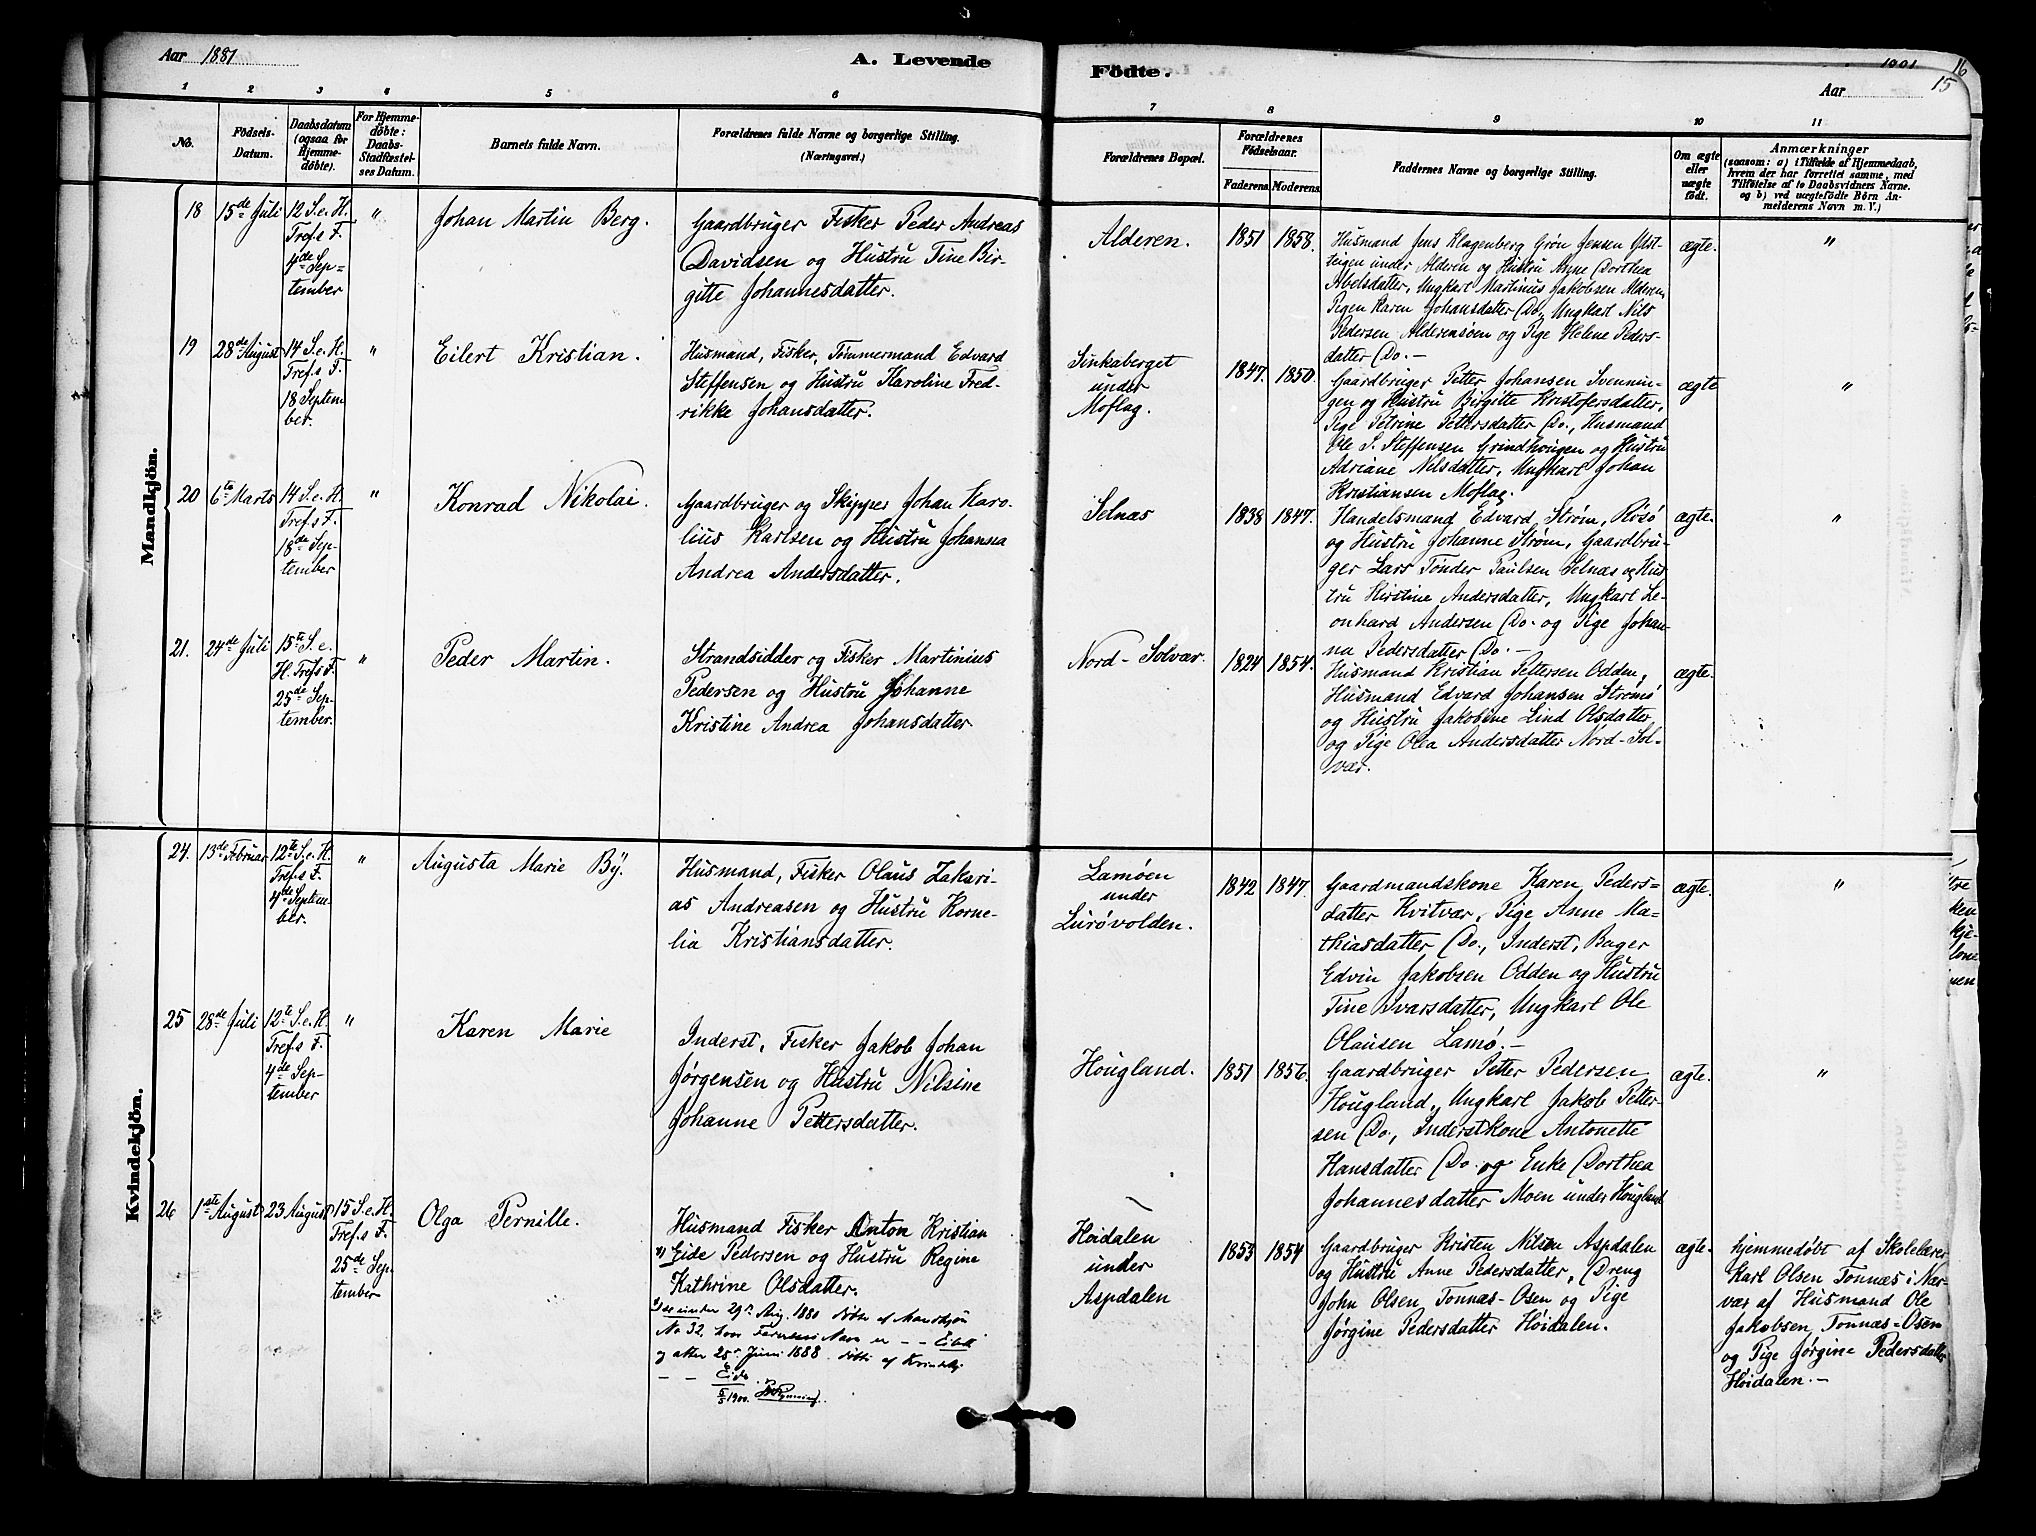 Aar 1881
A. Levende
Fødte.
Aar
16
15
1
2
3
4
5
6
7
8
9
10
11
No.
Fødsels-
Datum.
Daabsdatum
(ogsaa for
Hjemme-
døbte).
For Hjemme-
døbte:
Daabs-
Stadfæstel-
ses Datum.
Barnets fulde Navn.
Forældrenes fulde Navne og borgerlige Stilling.
(Næringsvei.)
Forældrenes Bopæl.
Forældrenes
Fødselsaar.
Faderens
Moderens.
Faddernes Navne og borgerlige Stilling.
Om ægte
eller
uægte
født.
Anmærkninger
(saasom: a) i Tilfælde af Hjemmedaab,
hvem der har forrettet samme, med
Tilføielse af to Daabsvidners Navne.
og b) ved uægtefødte Børn An-
melderens Navn m. V.)
Mandkjön.
18
15de Juli
12 S. e. H.
Tref.s F.
4de Sep-
tember
"
Johan Martin Berg.
Gaardbruger Fisker Peder Andreas
Davidsen og Hustru Tine Bir-
gitte Johannesdatter.
Alderen.
1851
1858.
Husmand Jens Klagenberg Grøn Jensen
under Alderen og Hustru Anne Dorthea
Abelsdatter, Ungkarl Martinus Jakobsen Alderen,
Pigen Karen Johansdatter Do, Ungkarl Nils
Pedersen Alderensøen og Pige Helene Peders-
datter Do. —
ægte.
"
19
28de August
14 S. e. H.
Tref.s F.
18 Septem-
ber.
"
Eilert Kristian.
Husmand, Fisker, Tømmermand Edvard
Steffensen og Hustru Karoline Fred-
rikke Johansdatter.
Sinkaberget
under
Moflag.
1847.
1850.
Gaardbruger Petter Johansen Svennin-
gen og Hustru Birgitte Kristofersdatter,
Pige Petrine Pettersdatter Do., Husmand
Ole S. Steffensen Grindhougen og Hustru
Adriane Nilsdatter, Ungkarl Johan
Kristiansen Moflag.
ægte
"
20
6te Marts
14 S. e. H.
Tref.s F.
18de Sep-
tember
"
Konrad Nikolai.
Gaardbruger og Skipper Johan Karo-
lius Karlsen og Hustru Johanna
Andrea Andersdatter.
Selnæs
1838
1847.
Handelsmand Edvard Strøm, Røsø
og Hustru Johanne Strøm, Gaardbru-
ger Lars Tønder Paulsen Selnæs og Hus-
tru Kirstine Andersdatter, Ungkarl Le-
onhard Andersen Do. og Pige Johan-
na Pedersdatter Do. —
ægte.
"
21.
24de Juli
15te S. e.
H. Tref.s F.
25de Sep-
tember.
"
Peder Martin.
Strandsidder og Fisker Martinius
Pedersen og Hustru Johanne
Kristine Andrea Johansdatter
Nord-Solvær.
1824
1854.
Husmand Kristian Pettersen Odden,
Husmand Edvard Johansen Strømø
og Hustru Jakobine Lind Olsdatter
og Pige Olea Andersdatter Nord-Sol-
vær.
ægte.
Kvindekjön.
24.
13de Februar
12te S. e. H.
Tref.s F.
4de Septem-
ber.
"
Augusta Marie By.
Husmand, Fisker Olaus Zakari-
as Andreasen og Hustru Korne-
lia Kristiansdatter.
Lamøen
under
Lurøvolden.
1842
1847.
Gaardmandskone Karen Peders-
datter Kvitvær, Pige Anne Ma-
thiasdatter Do., Inderst, Bager
Edvin Jakobsen Odden og Hustru
Tine Ivarsdatter, Ungkarl Ole
Olausen Lamø. —
ægte.
"
25
28de Juli
12te S. e. H.
Tref.s F.
4de Sep-
tember
"
Karen Marie
Inderst, Fisker Jakob Johan
Jørgensen og Hustru Nilsine
Johanne Pettersdatter.
Hougland.
1851
1856.
Gaardbruger Petter Pedersen
Hougland, Ungkarl Jakob Petter-
sen Do., Inderstkone Antonette
Hansdatter Do. og Enke Dorthea
Johannesdatter Moen under Hougland
ægte.
"
26
1ste August
23 August
15 S. e. H.
Tref.s F.
25de Sep-
tember
Olga Pernille.
Husmand Fisker Anton Kristian
Eide Pedersen og Hustru Regine
Kathrine Olsdatter.
under 29de Aug. 1880 døbte af Mandkjøn
No 32, hvor Faderens Navn er — —
og atter 25de Juni 1888 døbte af Kvindekj.
— — Eide
5/5 1900.
Høidalen
under
Aspdalen
1853
1854
Gaardbruger Kristen Nilsen Aspdalen
og Hustru Anne Pedersdatter, Dreng
John Olsen Tonnæs-Osen og Pige
Jørgine Pedersdatter Høidalen.
ægte.
hjemmedøbt af Skolelærer
Karl Olsen Tonnæs i Nær-
vær af Husmand Ole
Jakobsen, Tonnæs-Osen
og Pige Jørgine Pedersdatter
Høidalen. —